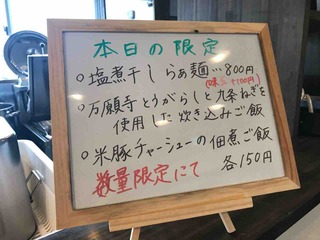 本日の限定
○塩煮干しらぁ麺…800円
(味玉+100円)
○万願寺とうがらしと九条ねぎを
使用した炊き込みご飯
○米豚チャーシューの佃煮ご飯
数量限定にて 各150円